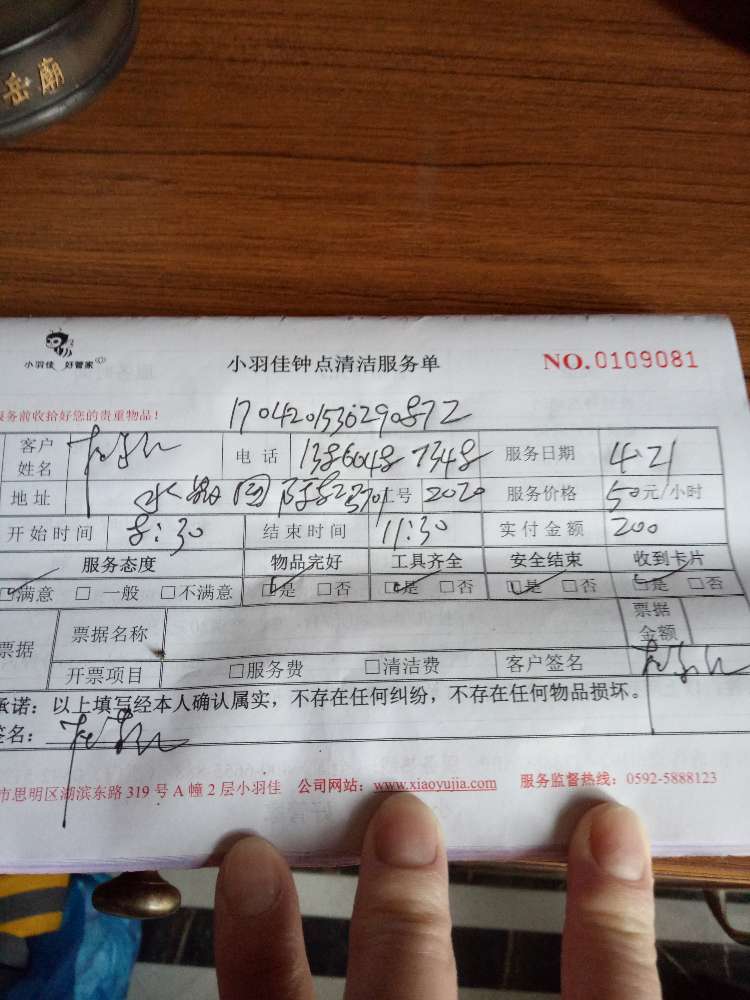 岳廟
小羽佳 好管家
小羽佳钟点清洁服务单
NO.0109081
务前收拾好您的贵重物品！
1704201530290872
客户姓名 电话 13860487348 服务日期 4.21
地址 水 园 工号 2020 服务价格 50元/小时
开始时间 8:30 结束时间 11:30 实付金额 200
服务态度 物品完好 工具齐全 安全结束 收到卡片
□满意 □一般 □不满意 □是 □否 □是 □否 □是 □否 □是 □否
票据 票据名称 票据金额
开票项目 □服务费 □清洁费 客户签名
承诺：以上填写经本人确认属实，不存在任何纠纷，不存在任何物品损坏。
签名：
市思明区湖滨东路 319 号 A 幢 2 层小羽佳 公司网站：www.xiaoyujia.com 服务监督热线：0592-5888123